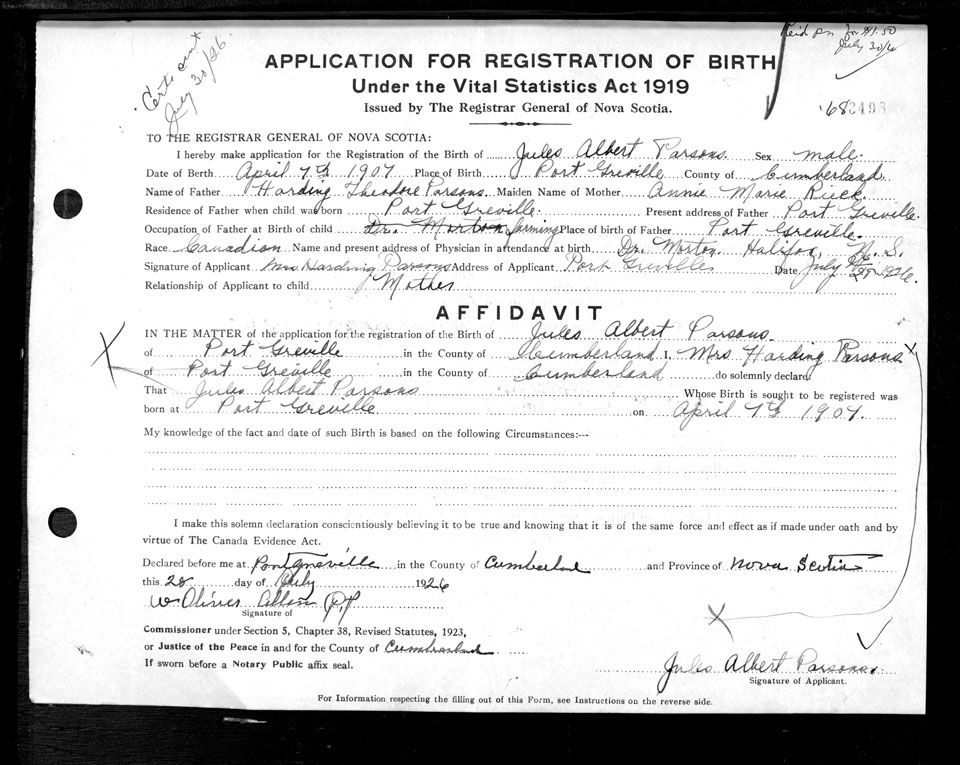 Certs sent
July 30/26.
for $1.50
July 30/26
APPLICATION FOR REGISTRATION OF BIRTH
Under the Vital Statistics Act 1919
Issued by The Registrar General of Nova Scotia.
TO THE REGISTRAR GENERAL OF NOVA SCOTIA:
I hereby make application for the Registration of the Birth of Jules Albert Parsons. Sex male.
Date of Berth April 7th 1907 Place of Birth Port Greville County of Cumberland.
Name of Father Harding Theodore Parsons Maiden Name of Mother Annie Marie
Residence of Father when child was born Port Greville. Present address of Father Port Greville.
Occupation of Father at Birth of child Dr. Morton farming Place of birth of Father Port Greville.
Race Canadian Name and present address of Physician in attendance at birth Dr. Morton. Halifax, N.S.
Signature of Applicant Mrs Harding Parsons Address of Applicant Port Greville Date July 28 1926.
Relationship of Applicant to child Mother
AFFIDAVIT
IN THE MATTER of the application for the registration of the Birth of Jules Albert Parsons.
of Port Greville in the County of Cumberland I, Mrs Harding Parsons
of Port Greville in the County of Cumberland do solemnly declare
That Jules Albert Parsons Whose Birth is sought to be registered was
born at Port Greville on April 7th 1907.
My knowledge of the fact and date of such Birth is based on the following Circumstances:--
I make this solemn declaration conscientiously believing it to be true and knowing that it is of the same force and effect as if made under oath and by
virtue of The Canada Evidence Act.
Declared before me at Portgreville in the County of Cumberland and Province of Nova Scotia
this 28 day of July 1926
W Oliver Allen J.P.
Signature of
Commissioner under Section 5, Chapter 38, Revised Statutes, 1923,
or Justice of the Peace in and for the County of Cumberland
If sworn before a Notary Public affix seal.
Jules Albert Parsons.
Signature of Applicant.
For Information respecting the filling out of this Form, see Instructions on the reverse side.